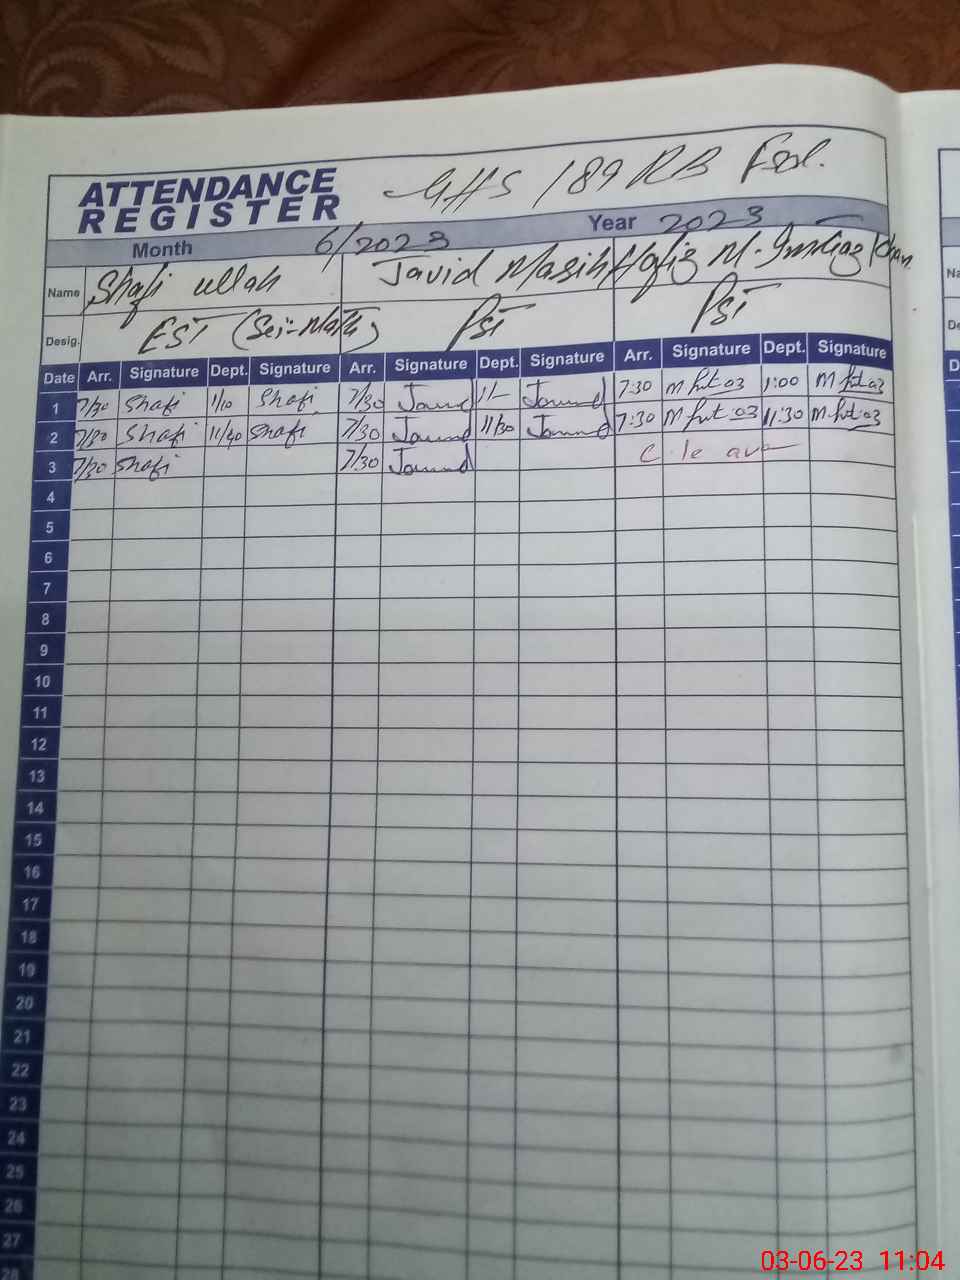 ATTENDANCE REGISTER GHS 189 RB Fsd.
Month 6/2023 Year 2023
Name Shafi ullah Javid Masih Hafiz M. Imtiaz Khan
Desig. EST (Sci-Math) PST PST
Date Arr. Signature Dept. Signature Arr. Signature Dept. Signature Arr. Signature Dept. Signature
1 7/30 Shafi 1/10 Shafi 7/30 1/- 7:30 1:00
2 7/30 Shafi 11/40 Shafi 7/30 11/30 7:30 11:30
3 7/30 Shafi 7/30 C. leave
4
5
6
7
8
9
10
11
12
13
14
15
16
17
18
19
20
21
22
23
24
25
26
27
28
Na
De
D
03-06-23 11:04